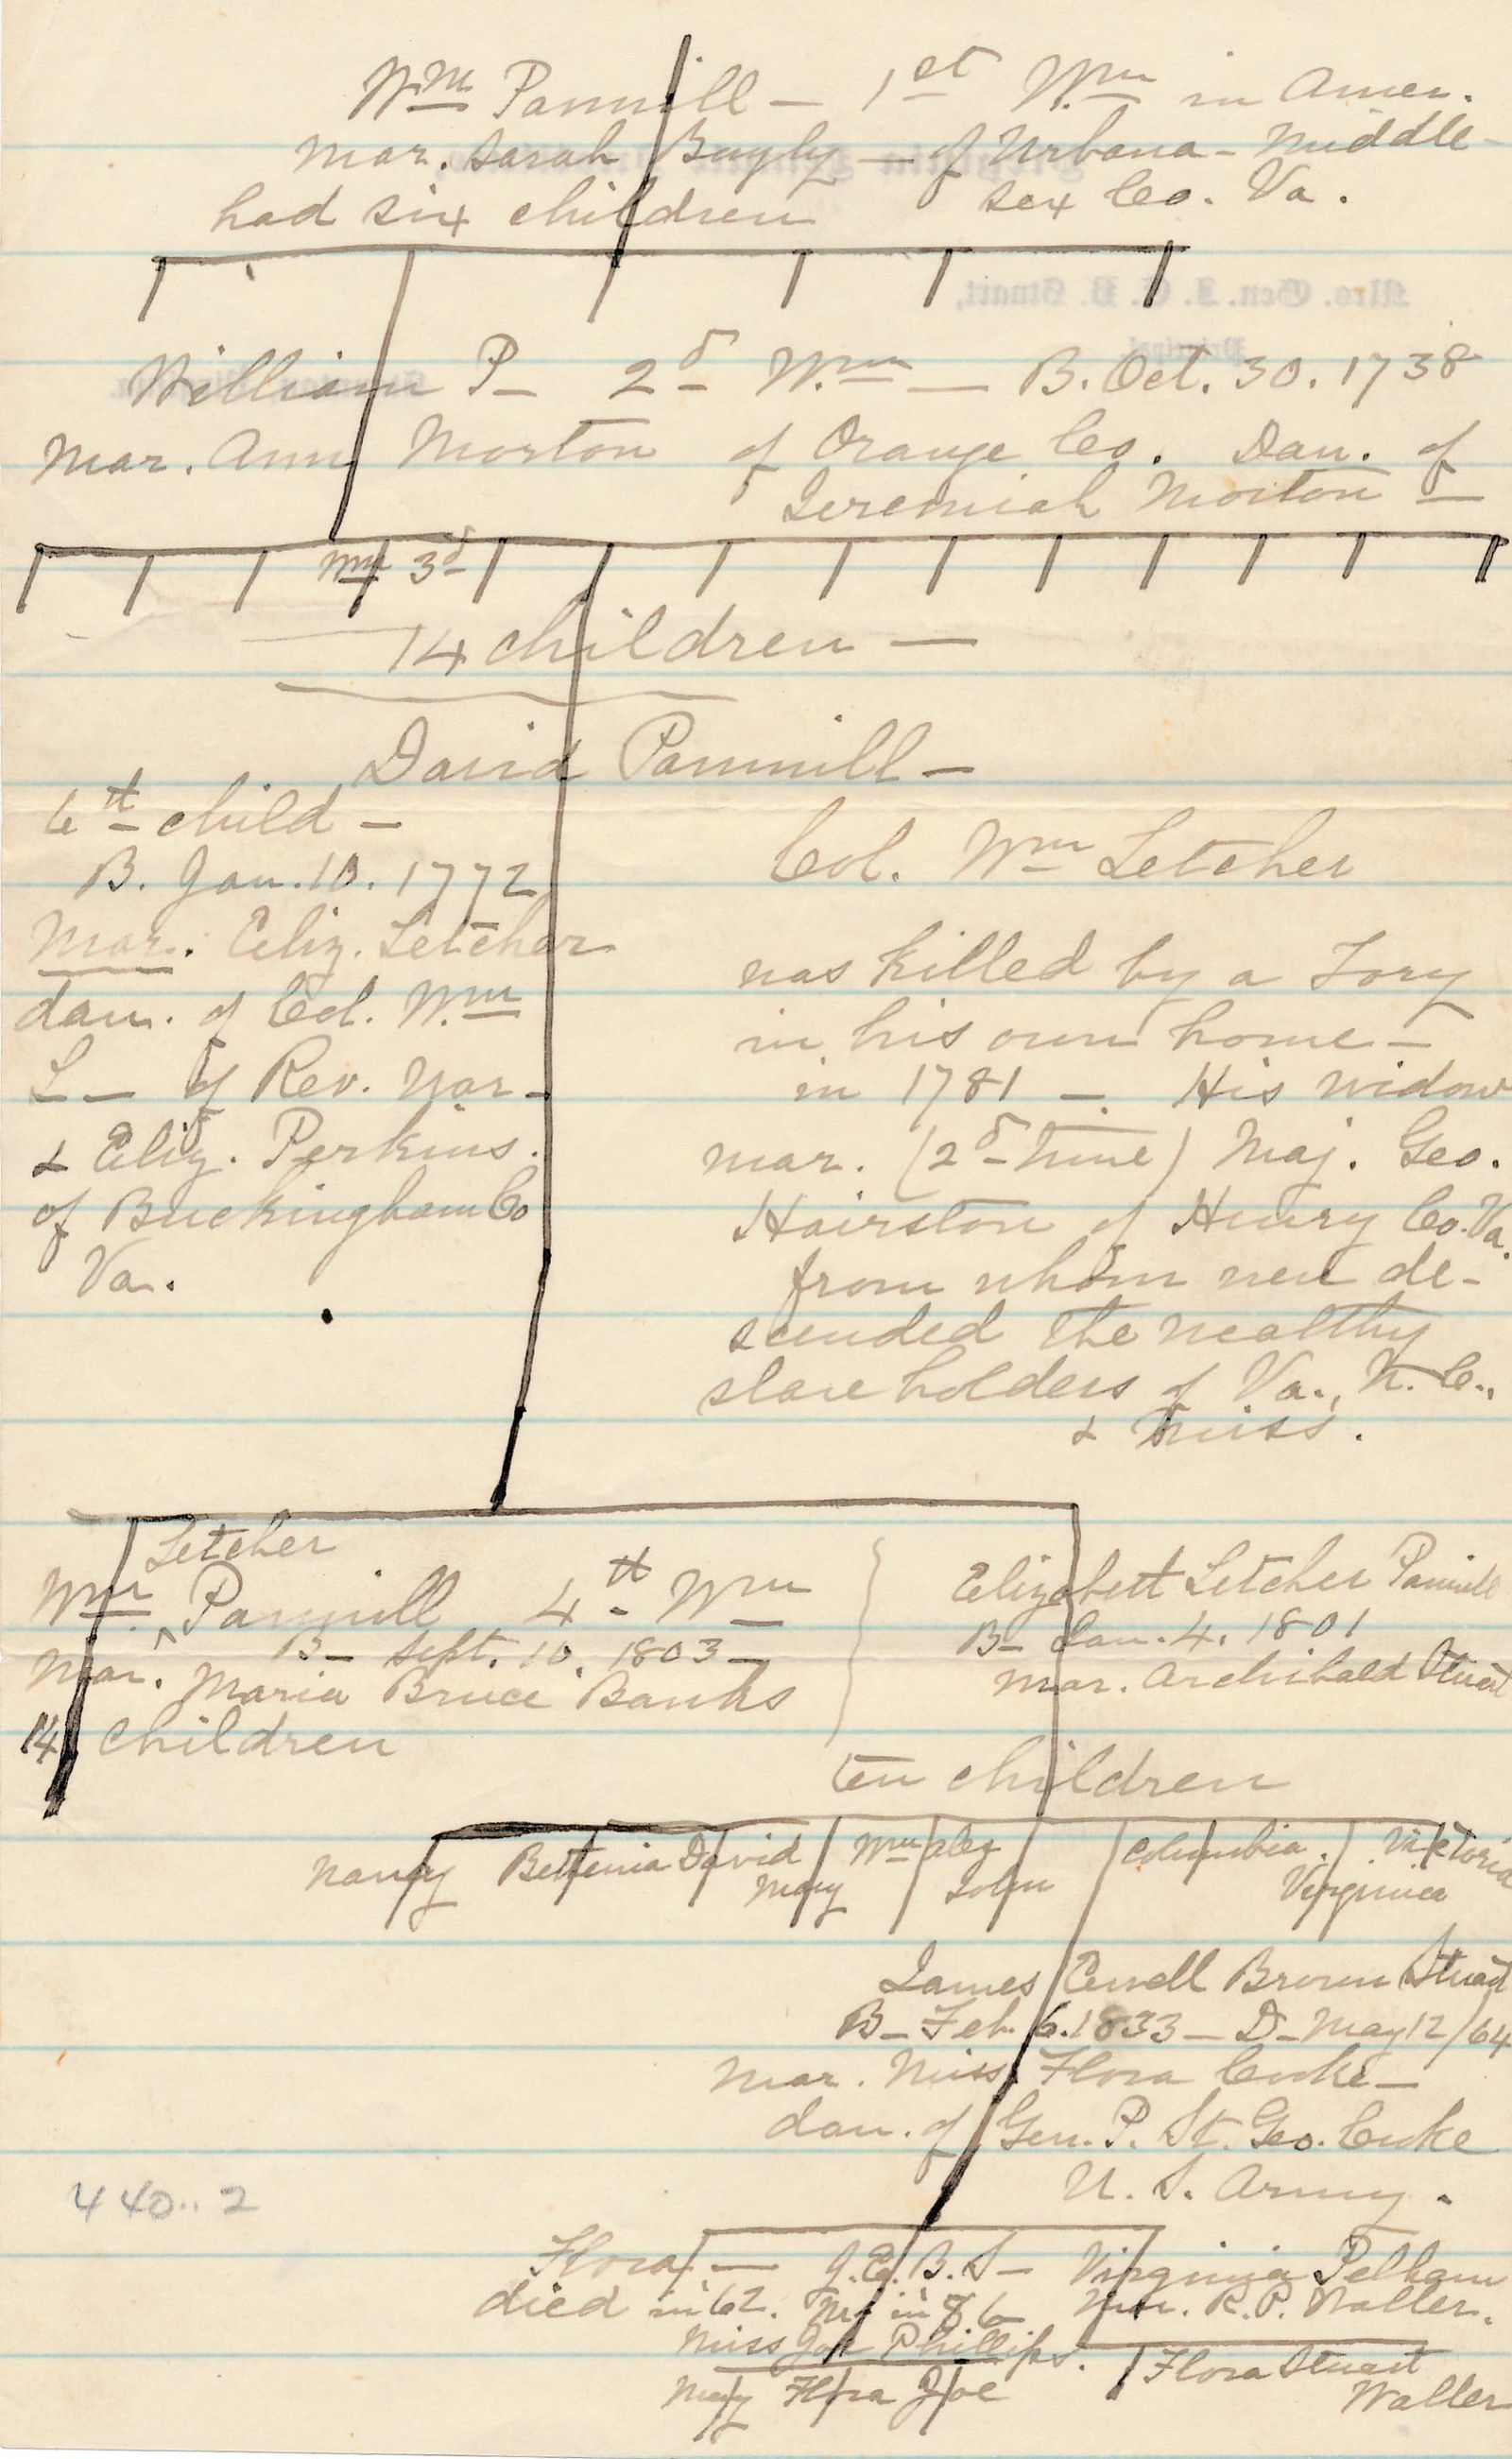 Wm Pannill — 1st Wm in Amer.
mar. Sarah Bayly — of Urbana - Middle-
had six children sex Co. Va.
Mrs. Gen. J. E. B. Stuart,
Principal
William P— 2d Wm — B. Oct. 30. 1738
Mar. Ann Morton of Orange Co. Dau. of
Jeremiah Morton —
Wm 3d
14 children —
David Pannill —
6th child —
B. Jan. 10. 1772
Mar. Eliz. Letcher
dau. of Col. Wm
L— of Rev. War—
& Eliz. Perkins.
of Buckingham Co
Va.
Col. Wm Letcher
was killed by a Tory
in his own home —
in 1781 —. His widow
mar. (2d time) Maj. Geo.
Hairston of Henry Co. Va.
from whom were de-
scended the wealthy
slave holders of Va., N. C.,
& Miss.
Letcher
Wm ^ Pannill 4th Wm
B— Sept. 10. 1803—
Mar. Maria Bruce Banks
14 children
Elizabett Letcher Pannill
B— Jan. 4. 1801
mar. Archibald Stuart
ten children
Nancy Bettenia David Wm Alex Columbia. Victoria
Mary John Virginia
James Ewell Brown Stuart
B— Feb. 6. 1833 — D— May 12/64
mar. Miss Flora Cooke —
dau. of Gen. P. St. Geo. Cooke
U. S. Army.
Flora — J. E. B. S— Virginia Pelham
died in '62. in '86 Mar. R. P. Waller.
Miss Joe Phillips.
Mary Flora Joe
Flora Stuart
Waller
440..2